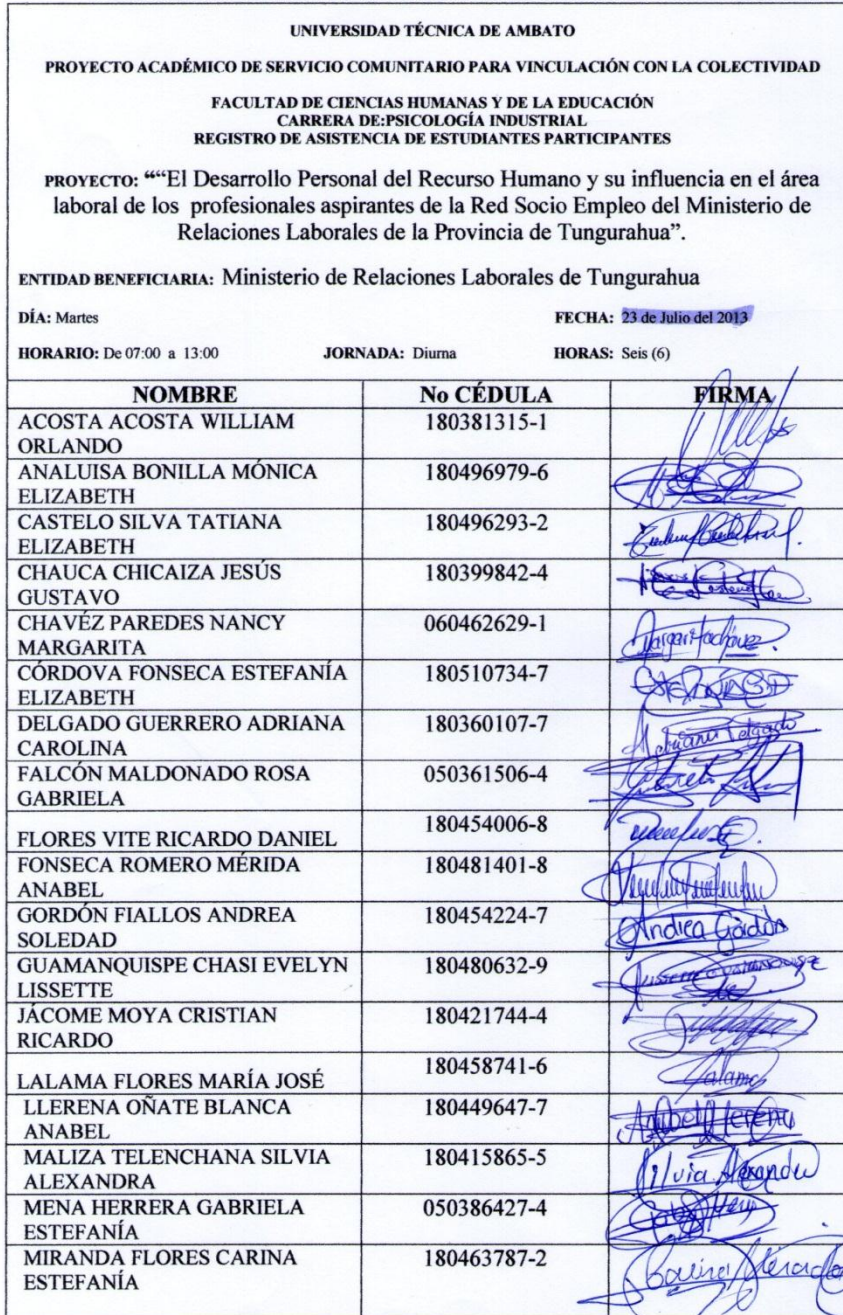 UNIVERSIDAD TÉCNICA DE AMBATO
PROYECTO ACADÉMICO DE SERVICIO COMUNITARIO PARA VINCULACIÓN CON LA COLECTIVIDAD
FACULTAD DE CIENCIAS HUMANAS Y DE LA EDUCACIÓN
CARRERA DE:PSICOLOGÍA INDUSTRIAL
REGISTRO DE ASISTENCIA DE ESTUDIANTES PARTICIPANTES
PROYECTO: ““El Desarrollo Personal del Recurso Humano y su influencia en el área
laboral de los profesionales aspirantes de la Red Socio Empleo del Ministerio de
Relaciones Laborales de la Provincia de Tungurahua”.
ENTIDAD BENEFICIARIA: Ministerio de Relaciones Laborales de Tungurahua
DÍA: Martes FECHA: 23 de Julio del 2013
HORARIO: De 07:00 a 13:00 JORNADA: Diurna HORAS: Seis (6)
NOMBRE No CÉDULA FIRMA
ACOSTA ACOSTA WILLIAM 180381315-1
ORLANDO
ANALUISA BONILLA MÓNICA 180496979-6
ELIZABETH
CASTELO SILVA TATIANA 180496293-2
ELIZABETH
CHAUCA CHICAIZA JESÚS 180399842-4
GUSTAVO
CHAVÉZ PAREDES NANCY 060462629-1
MARGARITA
CÓRDOVA FONSECA ESTEFANÍA 180510734-7
ELIZABETH
DELGADO GUERRERO ADRIANA 180360107-7
CAROLINA Adriana Delgado
FALCÓN MALDONADO ROSA 050361506-4
GABRIELA
FLORES VITE RICARDO DANIEL 180454006-8
FONSECA ROMERO MÉRIDA 180481401-8
ANABEL
GORDÓN FIALLOS ANDREA 180454224-7
SOLEDAD Andrea Gordón
GUAMANQUISPE CHASI EVELYN 180480632-9
LISSETTE
JÁCOME MOYA CRISTIAN 180421744-4
RICARDO
LALAMA FLORES MARÍA JOSÉ 180458741-6 Lalama
LLERENA OÑATE BLANCA 180449647-7
ANABEL Anabel Llerena
MALIZA TELENCHANA SILVIA 180415865-5
ALEXANDRA
MENA HERRERA GABRIELA 050386427-4
ESTEFANÍA
MIRANDA FLORES CARINA 180463787-2
ESTEFANÍA